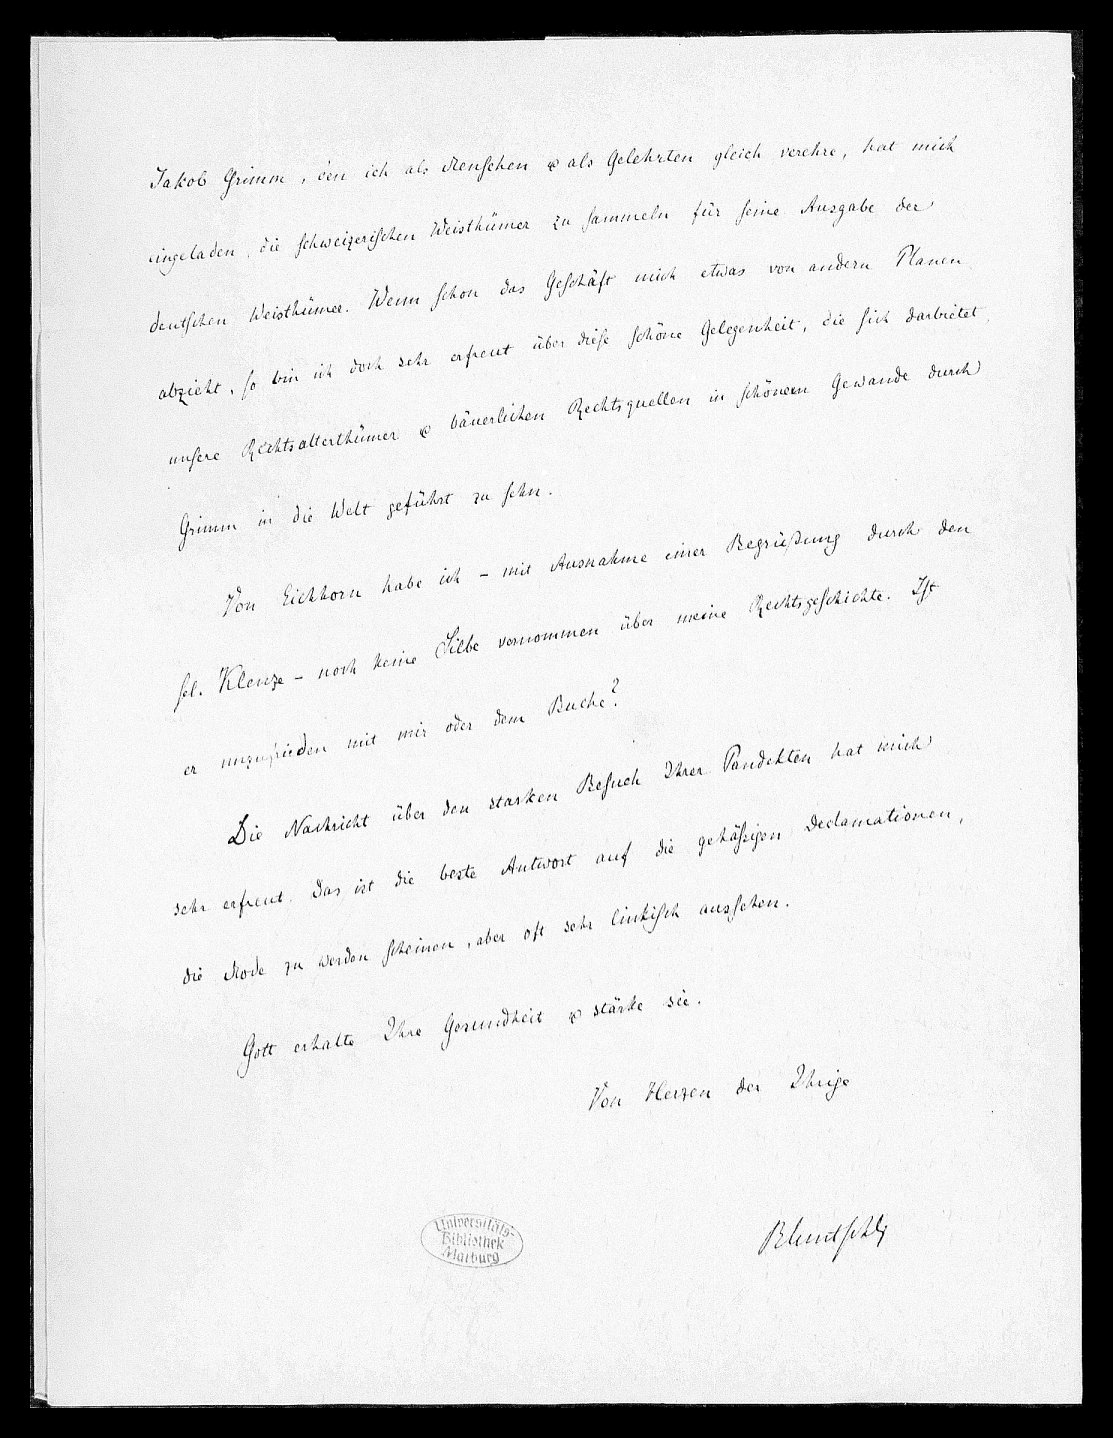 Jakob Grimm, den ich als Menschen & als Gelehrten gleich verehre, hat mich
eingeladen, die schweizerischen Weisthümer zu sammeln für seine Ausgabe der
deutschen Weisthümer. Wenn schon das Geschäft mich etwas von andern Planen
abzieht, so bin ich doch sehr erfreut über diese schöne Gelegenheit, die sich darbietet,
unsere Rechtsalterthümer & bäuerlichen Rechtsquellen in schönem Gewande durch
Grimm in die Welt geführt zu sehn.
Von Eichhorn habe ich – mit Ausnahme einer Begrüßung durch den
sel. Klenze – noch keine Silbe vernommen über meine Rechtsgeschichte. Ist
er unzufrieden mit mir oder dem Buche?
Die Nachricht über den starken Besuch Ihrer Pandekten hat mich
sehr erfreut. Das ist die beste Antwort auf die gehäßigen Declamationen,
die Mode zu werden scheinen, aber oft sehr linkisch aussehen.
Gott erhalte Ihre Gesundheit & stärke sie.
Von Herzen der Ihrige
Bluntschli
Universitäts-
Bibliothek
Marburg